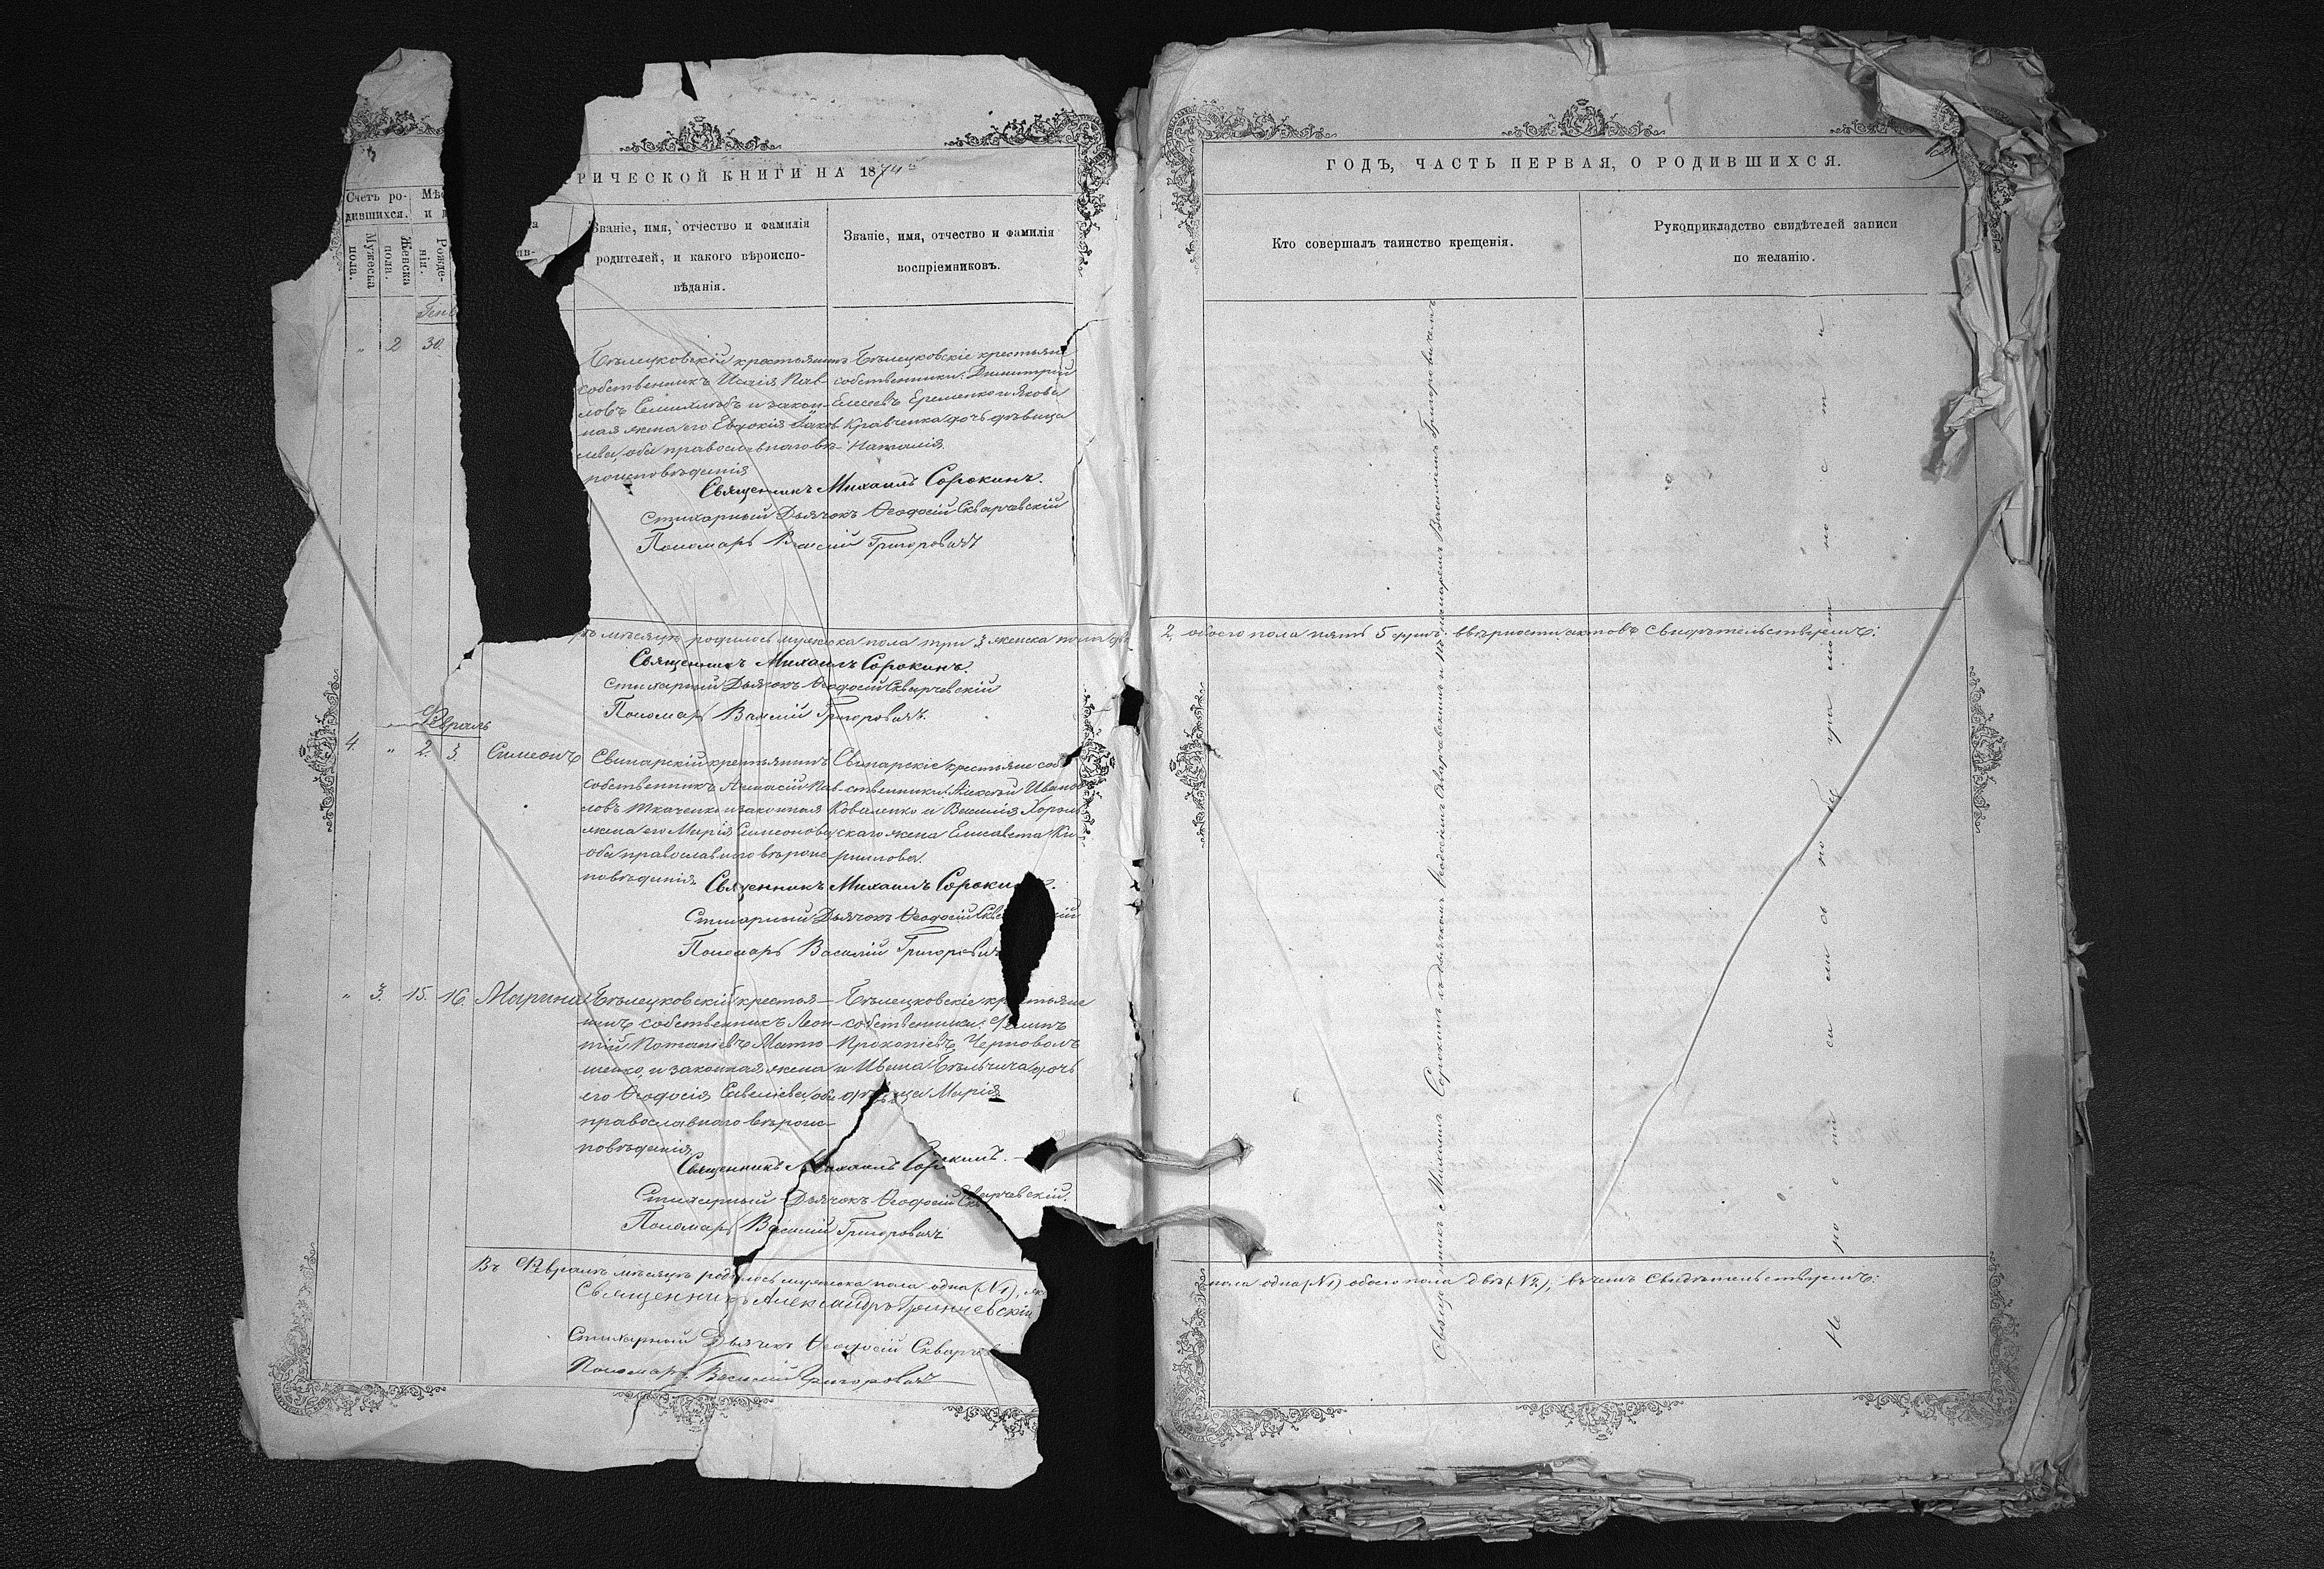 РИЧЕСКОЙ КНИГИ НА 1874
Счетъ ро-
дившихся.
Мѣс
и д
Мужеска
пола.
Женска
пола.
Рожде-
нія.
Званіе, имя, отчество и фамилія
родителей, и какого вѣроиспо-
вѣданія.
Званіе, имя, отчество и фамилія
воспріемниковъ.
" 2 30.
Бѣлецковскій крестьянинъ
собственникъ Исаія Пав-
ловъ и закон-
ная жена его Евдокія Іаков
лева, оба православнаго вѣ-
роисповѣданія
Бѣлецковскіе крестьяне
собственники: Димитрій
Елесеевъ Еременко и Якова
Кравченка дочь дѣвица
Наталія.
Священникъ Михаилъ Сорокинъ.
Стихарный Дьячокъ Ѳеодосій Скварчевскій
Пономарь Василій Григоровичъ
ѣ мѣсяцѣ родилось мужеска пола три 3 женска пола дв
Священникъ Михаилъ Сорокинъ.
Стихарный Дьячокъ Ѳеодосій Скварчевскій
Пономарь Василій Григоровичъ.
Февраль
4. " 2. 3. Симеонъ
Свинарскій крестьянинъ
собственникъ Аѳанасій Пав-
ловъ Ткаченко и законная
жена его Марія Симеонова,
оба православнаго вѣроис
повѣданія.
Свинарскіе крестьяне соб
ственники: Алексѣй Иванов
Коваленко и Василія Хороль
скаго жена Елисавета Ки
риллова.
Священникъ Михаилъ Сороки
Стихарный Дьячокъ Ѳеодосій Скв ій
Пономарь Василій Григорович
" 3. 15. 16. Марина
Бѣлецковскій крестья-
нинъ собственникъ Леон-
тій Потапіевъ Матю-
шенко, и законная жена
его Ѳеодосія Савеліева, оба
православнаго вѣроис-
повѣданія
Бѣлецковскіе крестьяне
собственники: Филипъ
Прокопіевъ Черноволъ
и Ивана Бѣльчича дочь
дѣвица Марія.
Священникъ Михаилъ Сорокинъ.
Стихарный Дьячокъ Ѳеодосій Скварчевскій.
Пономарь Василій Григоровичъ
Въ Февралѣ мѣсяцѣ родилось мужеска пола одна (№1), же
Священникъ Александръ Гриневскій
Стихарный Дьячокъ Ѳеодосій Скварче
Пономарь Василій Григоровичъ
ГОДЪ, ЧАСТЬ ПЕРВАЯ, О РОДИВШИХСЯ.
Кто совершалъ таинство крещенія.
Рукоприкладство свидѣтелей записи
по желанію.
Священникъ Михаилъ Сорокинъ съ дьячкомъ Ѳеодосіемъ Скварчевскимъ и пономаремъ Василіемъ Григоровичемъ
Не просили по безграмотности
2, обоего пола пять 5 душъ. ввѣрности актовъ свидѣтельствуемъ:
пола одна (№1) обоего пола двѣ (№2); въ чемъ свидѣтельствуемъ: